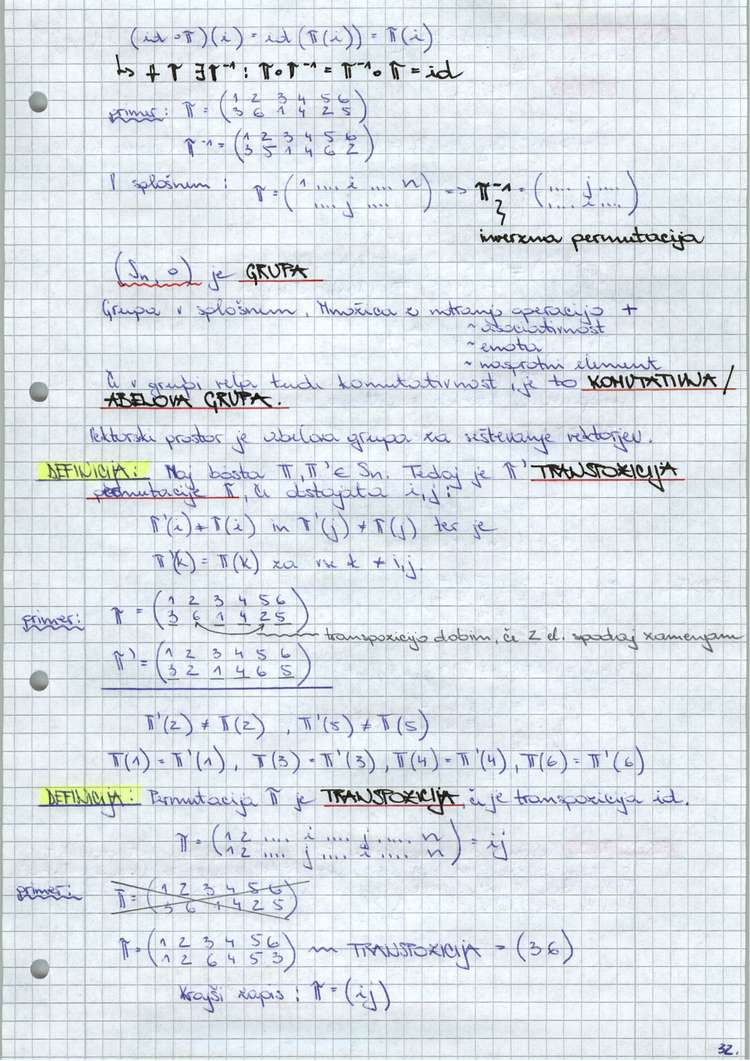 (id ∘ π)(i) = id (π(i)) = π(i)
↳ ∀ π ∃ π⁻¹ : π ∘ π⁻¹ = π⁻¹ ∘ π = id
primer: π = (1 2 3 4 5 6
3 6 1 4 2 5)
π⁻¹ = (1 2 3 4 5 6
3 5 1 4 6 2)
V splošnem : π = (1 .... i .... n
.... j ....) => π⁻¹ = (.... j ....
.... i ....)
inverzna permutacija
(Sn, ∘) je GRUPA
Grupa v splošnem. Množica z notranjo operacijo +
~ asociativnost
~ enota
~ nasprotni element
Če v grupi velja tudi komutativnost, je to KOMUTATIVNA /
ABELOVA GRUPA.
Vektorski prostor je abelova grupa za seštevanje vektorjev.
DEFINICIJA: Naj bosta π, π' ∈ Sn. Tedaj je π' TRANSPOZICIJA
permutacije π, če obstajata i, j :
π'(i) ≠ π(i) in π'(j) ≠ π(j) ter je
π'(k) = π(k) za vse k ≠ i, j.
primer: π = (1 2 3 4 5 6
3 6 1 4 2 5)
transpozicijo dobim, če 2 el. spodaj zamenjam
π' = (1 2 3 4 5 6
3 2 1 4 6 5)
π'(2) ≠ π(2) , π'(5) ≠ π(5)
π(1) = π'(1), π(3) = π'(3), π(4) = π'(4), π(6) = π'(6)
DEFINICIJA: Permutacija π je TRANSPOZICIJA, če je transpozicija id.
π = (1 2 .... i .... j .... n
1 2 .... j .... i .... n) = ij
primer: π = (1 2 3 4 5 6
3 6 1 4 2 5)
π = (1 2 3 4 5 6
1 2 6 4 5 3) ~ TRANSPOZICIJA = (36)
Krajši zapis : π = (ij)
32.